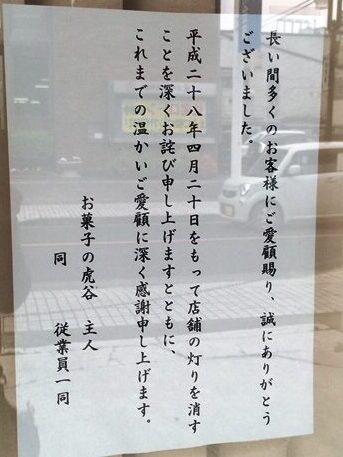 長い間多くのお客様にご愛顧賜り、誠にありがとう
ございました。
平成二十八年四月二十日をもって店舗の灯りを消す
ことを深くお詫び申し上げますとともに、
これまでの温かいご愛顧に深く感謝申し上げます。
お菓子の虎谷 主人
同 従業員一同